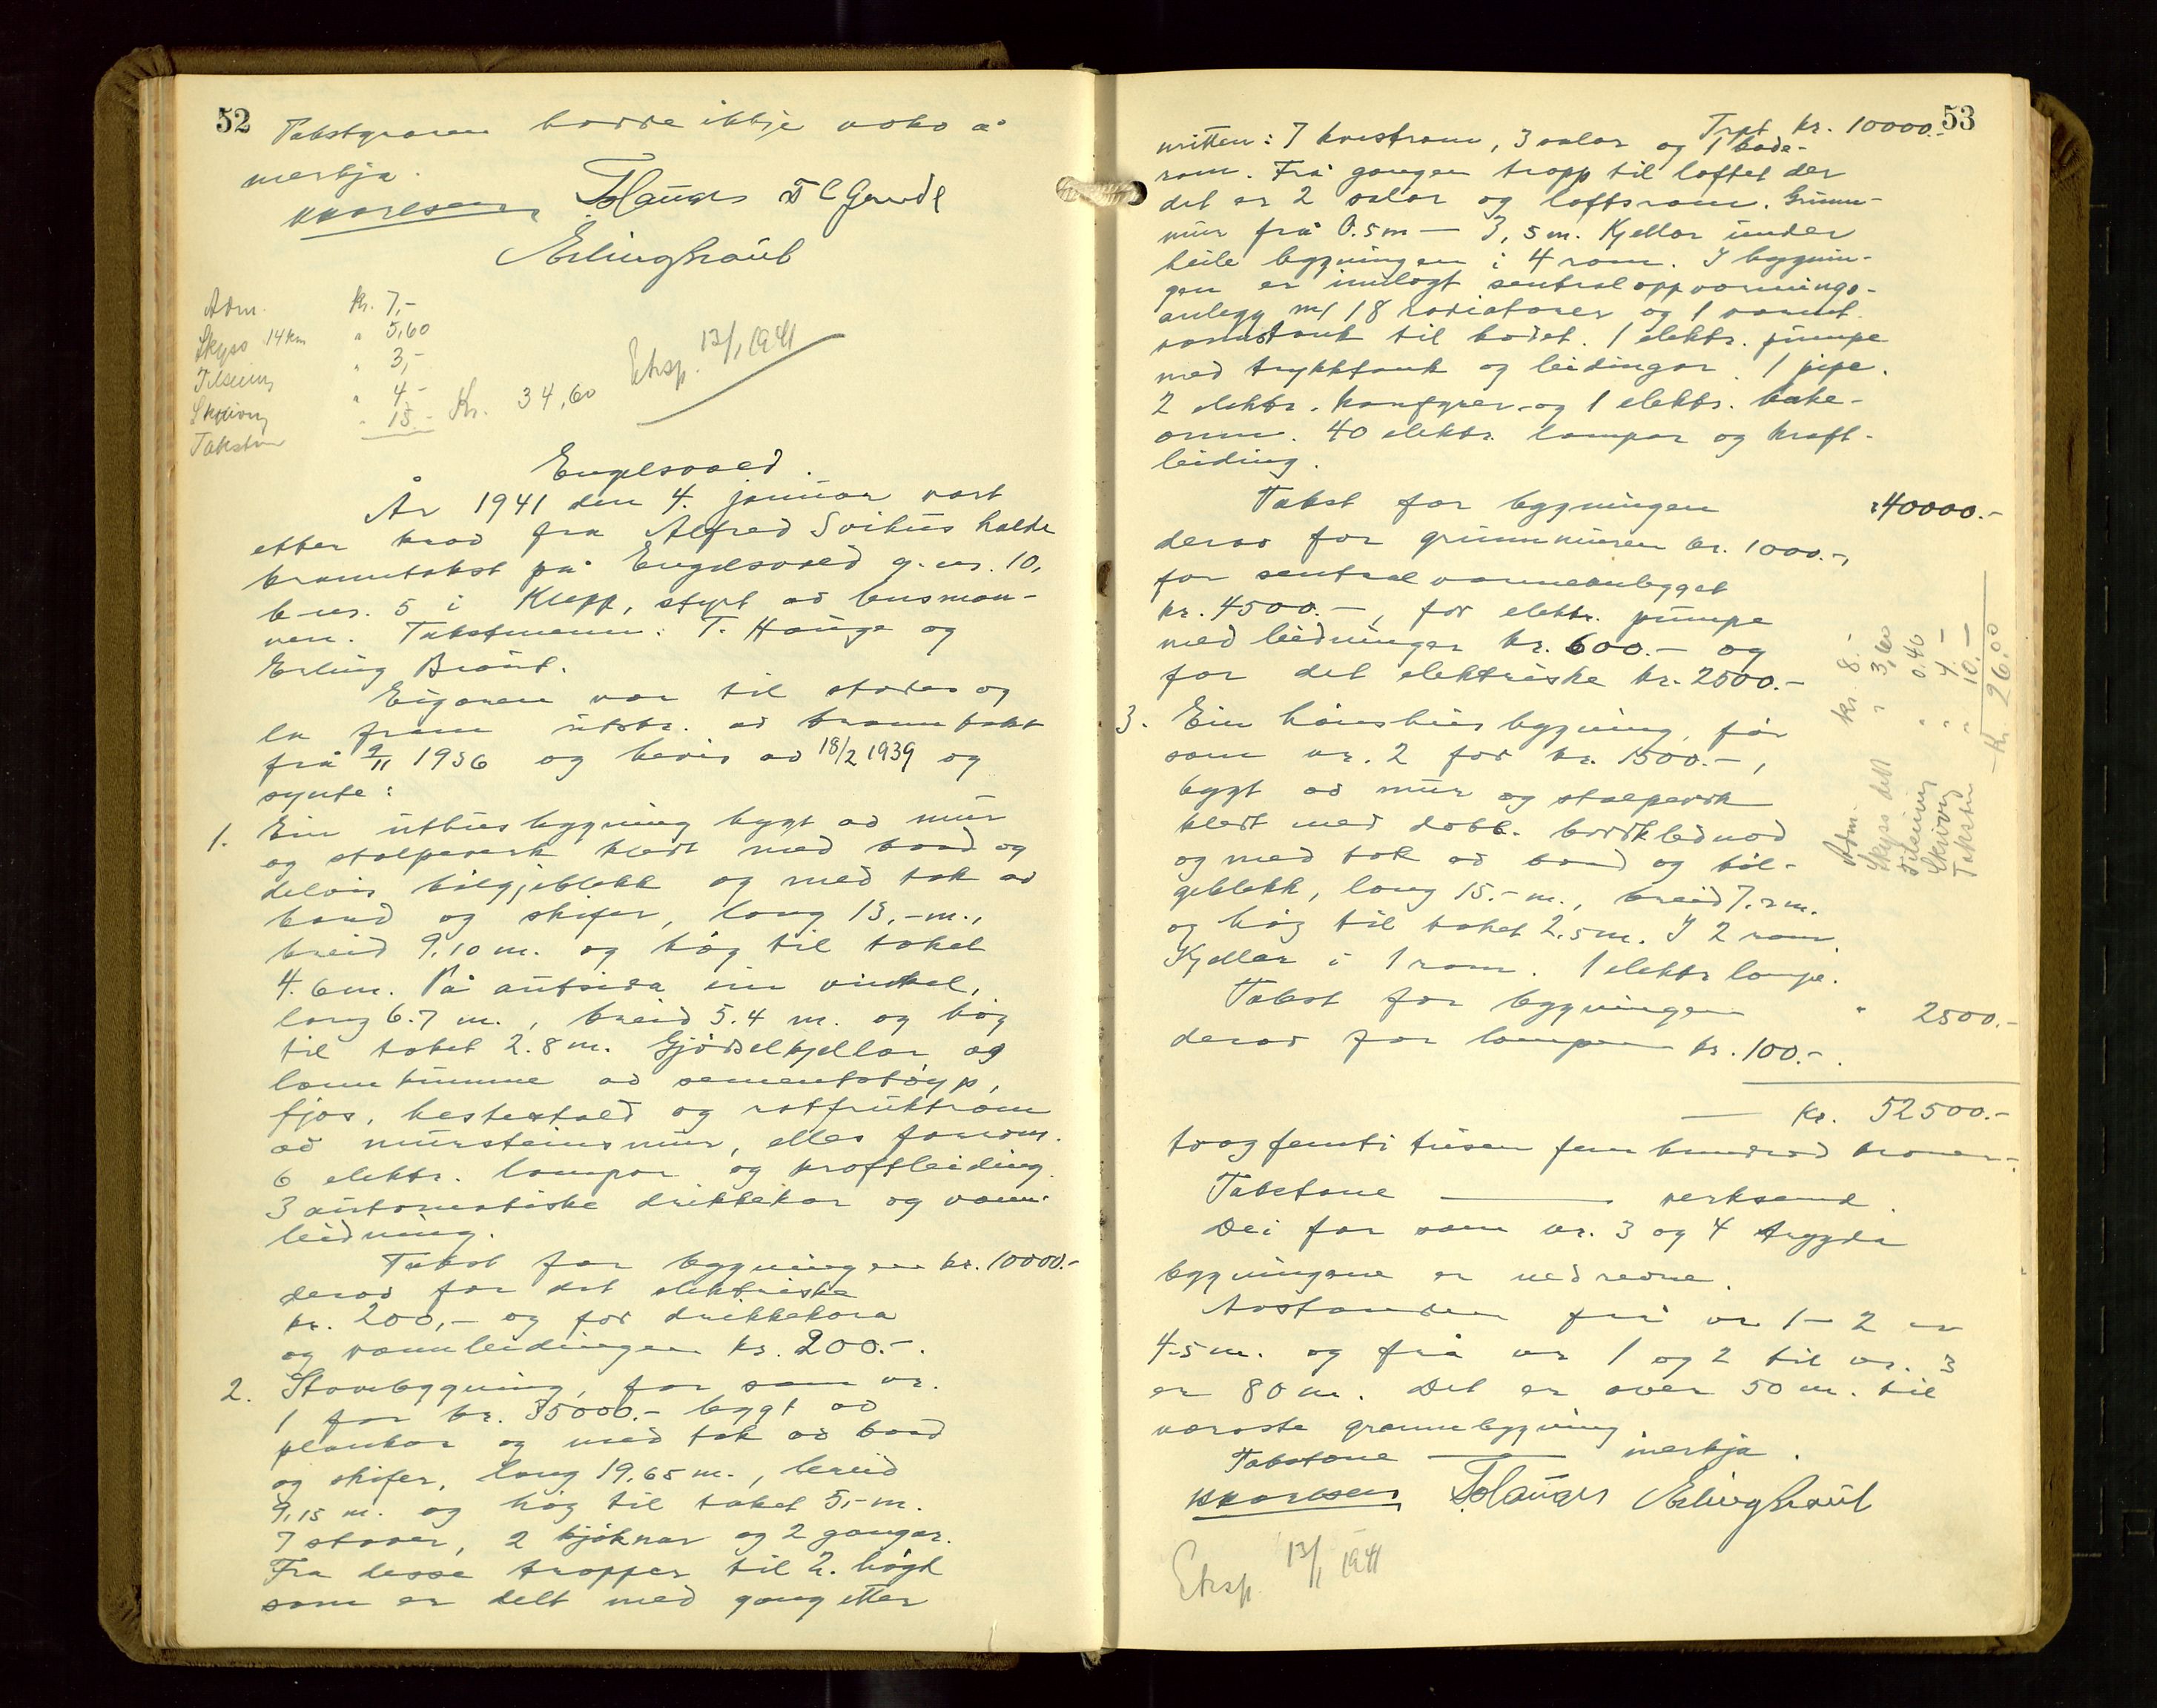 52
Takstgrasen hadde ikkje noko å
merkja.
K Karlsen T. Hauge
Erling Braut
Adm. Kr. 7,-
Skyss 14 km " 5,60
Tilseing " 3,-
Skriving " 4,-
Takstm " 15.- Kr. 34,60
Eksp. 13/1 1941
Engelsvold.
År 1941 den 4. januar vart
etter krav fra Alfred Svihus halde
branntakst på Engelsvold g.nr. 10,
b.nr. 5 i Klepp, styrt av lensman-
nen. Takstmenn: T. Hauge og
Erling Braut.
Eigaren var til stades og
la fram utskr. av branntakst
frå 9/11 1936 og bevis av 18/2 1939 og
synte:
1. Ein uthusbygning bygt av mur
og stolpeverk kledt med bord og
delvis bølgjeblekk og med tak av
bord og skifer, lang 13,- m.,
breid 9,10 m. og høg til taket
4.6 m. På autsida ein vinkel,
lang 6.7 m., breid 5.4 m. og høg
til taket 2.8 m. Gjødselkjellar og
lannkumme av sementstøyp,
fjos, hestestald og rotfruktrom
av mursteinsmur, elles forrom.
6 elektr. lampor og kraftleiding.
3 automatiske drikkekar og vann-
leidning.
Takst for bygningen kr. 10000.-
derav for det elektriske
kr. 200,- og for drikkekara
og vannleidingen kr. 200.-.
2. Stovebygning, før som nr.
1 for kr. 35000.- bygt av
plankar og med tak av bord
og skifer, lang 19,65 m., breid
9,15 m. og høg til taket 5,- m.
7 stover, 2 kjøknar og 2 gangar.
Fra desse tropper til 2. høgd
som er delt med gang etter
53
Trpt kr. 10000.-
mitten: 7 kvistrom, 3 salar og 1 bade-
rom. Frå gangen tropp til loftet der
det er 2 salar og loftsrom. Grunn-
mur frå 0.5 m – 3,5 m. Kjellar under
heile bygningen i 4 rom. I bygnin-
gen er innlagt sentraloppvarmings-
anlegg m/ 18 radiatorer og 1 varmt-
vannstank til badet. 1 elektr. pumpe
med trykktank og leidingar. 1 pipe.
2 elektr. komfyrer og 1 elektr. bake-
omn. 40 elektr. lampor og kraft-
leiding.
Takst for bygningen " 40000.-
derav for grunnmuren kr. 1000.-,
for sentralvarmeanlegget
kr. 4500.-, for elektr. pumpe
med leidninger kr. 600.- og
for det elektriske kr. 2500.-
3. Ein hønshusbygning, før
som nr. 2 for kr. 1500.-,
bygt av mur og stolpeverk
kledt med dobb. bordklednad
og med tak av bord og bøl-
geblekk, lang 15.- m., breid 7.2 m.
og høg til taket 2.5 m. I 2 rom.
Kjellar i 1 rom. 1 elektr lampe.
Takst for bygningen " 2500.-
derav for lampen kr. 100.-.
— Kr. 52500.-
toogfemti tusen fem hundrad kroner.-
Takstane — verksemd.
Dei før som nr. 3 og 4 trygda
bygningane er nedrevne.
Avstanden frå nr 1 – 2 er
4.5 m. og frå nr 1 og 2 til nr. 3
er 80 m. Det er over 50 m. til
næraste grannebygning.
Takstane — merkja.
K Karlsen T. Hauge Erling Braut
Eksp. 13/1 1941
Adm. kr 8.-
Skyss delt " 3,60
Tilseing " 0.40
Skriving " 4.-
Takstm " 10.-
Kr. 26,00